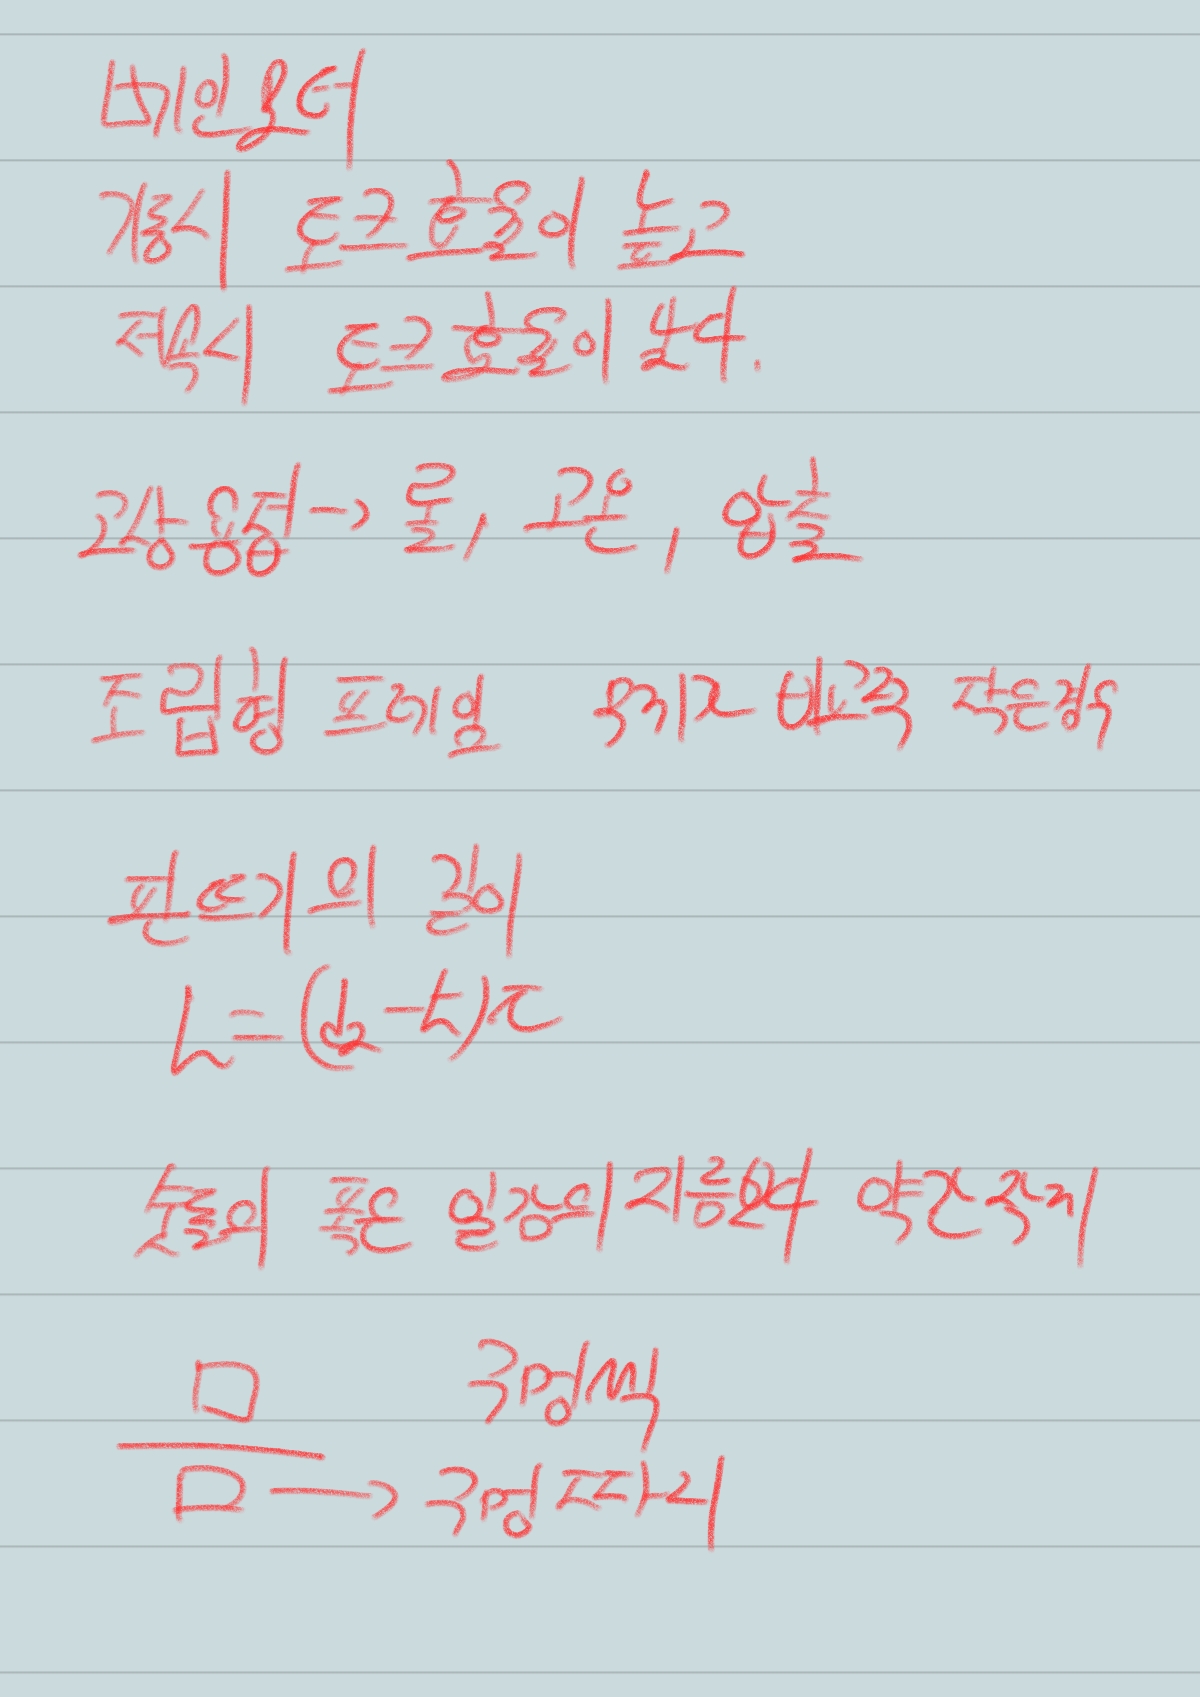 베인모터
기동시 토크효율이 높고
저속시 토크효율이 낮다.
고상용점→ 롤, 고온, 압출
조립형 프레임 부가 비교적 작은경우
판뜨기의 길이
L=( -t)π
숫돌의 폭은 일감의 지름보다 약간 작게
ㅁ 구멍씩
ㅁ → 구멍짜리